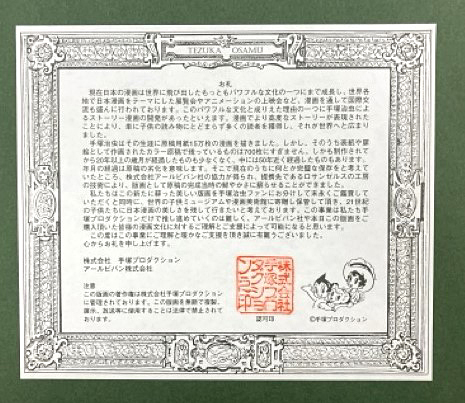 TEZUKA OSAMU
お札
現在日本の漫画は世界に飛び出したもっともパワフルな文化の一つにまで成長し、世界各
地で日本漫画をテーマにした展覧会やアニメーションの上映会など、漫画を通して国際交
流も盛んに行われております。このパワフルな文化と成りえた理由の一つに手塚治虫によ
るストーリー漫画の開発があったといえます。漫画でより高度なストーリーが表現された
ことにより、単に子供の読み物にとどまらず多くの読者を獲得し、それが世界へと広まり
ました。
手塚治虫はその生涯に原稿用紙15万枚の漫画を描きました。しかし、そのうち装絵や扉
絵として作画されたカラー原稿で残っているものは700枚にすぎません。しかも制作されて
から20年以上の歳月が経過したものも少なくなく、中には50年近く経過したものもあります。
年月の経過は原稿の劣化を意味します。そこで現在のうちに何とか完璧な保存をと考えて
いたところ、株式会社アールビバン社の協力が得られ、提携先であるロサンゼルスの工房
の技術により、版画として原稿の完成当時の鮮やかさに蘇らせることができました。
私たちはこの新たに蘇った美しい版画を手塚治虫ファンにお分けして末永くご鑑賞して
いただくと同時に、世界の子供ミュージアムや漫画美術館に寄贈し保管して頂き、21世紀
の子供たちに日本漫画の美しさを残して行きたいと考えております。この事業は私たち手
塚プロダクションだけで推し進めていくのは難しく、アールビバン社や本日この版画をご
購入頂いた皆様の漫画文化に対するご理解とご支援によって可能になると思います。
この度はこの事業にご理解と暖かなご支援を頂き誠に有難うございました。
心からお礼を申し上げます。
株式会社 手塚プロダクション
アールビバン株式会社
注意
この版画の著作権は株式会社手塚プロダクション
に管理されております。この版画を無断で複製、
展示、放送等に使用することは法律で禁止されて
おります。
株式会社
手塚プロ
ダクション
認可印
©手塚プロダクション